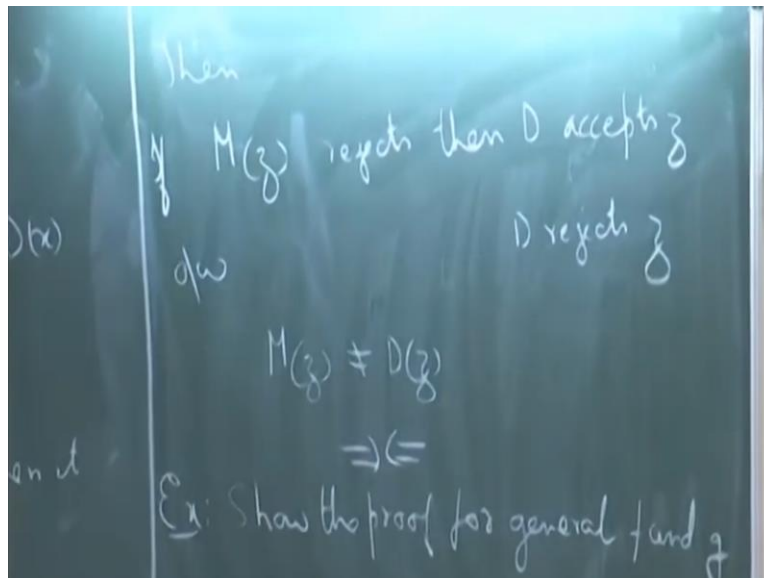 Then
If M(z) rejects then D accepts z
D(x)
o/w D rejects z
M(z) ≠ D(z)
⇒⇐
en it
Ex: Show the proof for general f and g